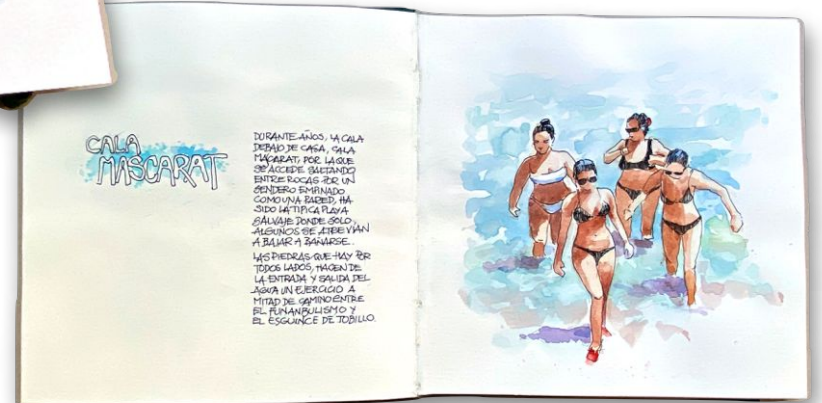 CALA
MASCARAT
DURANTE AÑOS, LA CALA
DEBAJO DE CASA, CALA
MACARAT, POR LA QUE
SE ACCEDE SALTANDO
ENTRE ROCAS POR UN
SENDERO EMPINADO
COMO UNA PARED, HA
SIDO LA TIPICA PLAYA
SALVAJE DONDE SOLO
ALGUNOS SE ATREVIAN
A BAJAR A BAÑARSE.
LAS PIEDRAS QUE HAY POR
TODOS LADOS, HACEN DE
LA ENTRADA Y SALIDA DEL
AGUA UN EJERCICIO A
MITAD DE CAMINO ENTRE
EL FUNANBULISMO Y
EL ESGUINCE DE TOBILLO.